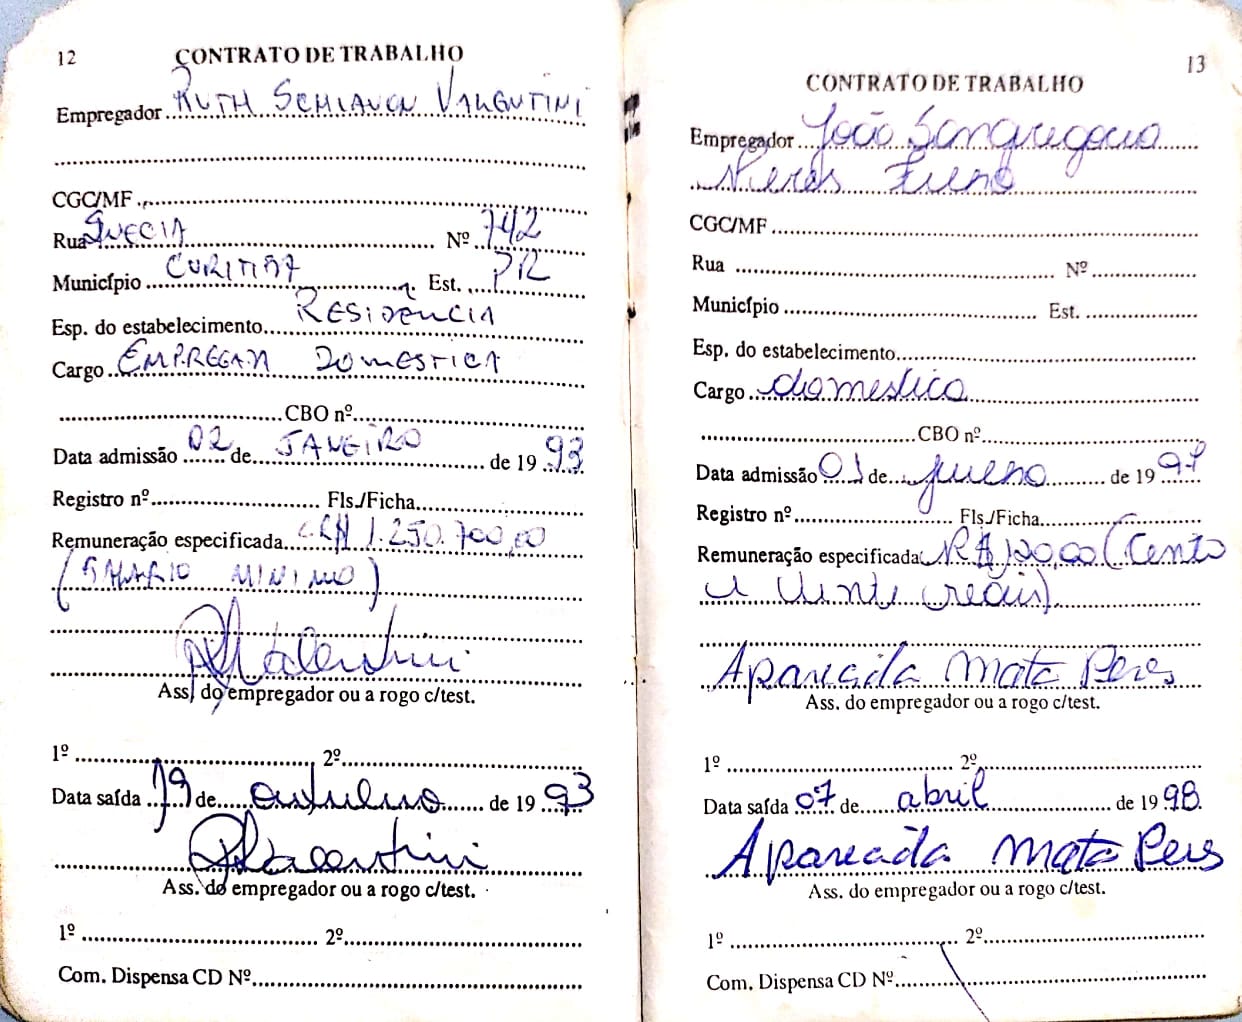 12 CONTRATO DE TRABALHO
Empregador RUTH SCHIAVON VALENTINI
CGC/MF
Rua SUECIA Nº 742
Município CURITIBA Est. PR
Esp. do estabelecimento RESIDÊNCIA
Cargo EMPREGADA DOMESTICA
CBO nº
Data admissão 02 de JANEIRO de 19 93
Registro nº Fls./Ficha
Remuneração especificada CR$ 1.250.700,00
(SALARIO MINIMO)
RSValentini
Ass. do empregador ou a rogo c/test.
1º 2º
Data saída 19 de outubro de 19 93
RSValentini
Ass. do empregador ou a rogo c/test.
1º 2º
Com. Dispensa CD Nº
13
CONTRATO DE TRABALHO
Empregador João
Filho
CGC/MF
Rua Nº
Município Est.
Esp. do estabelecimento
Cargo domestica
CBO nº
Data admissão 01 de julho de 19 97
Registro nº Fls./Ficha
Remuneração especificada R$ 120,00 (Cento
e vinte reais)
Aparecida Mata Peres
Ass. do empregador ou a rogo c/test.
1º 2º
Data saída 07 de abril de 19 98
Aparecida Mata Peres
Ass. do empregador ou a rogo c/test.
1º 2º
Com. Dispensa CD Nº